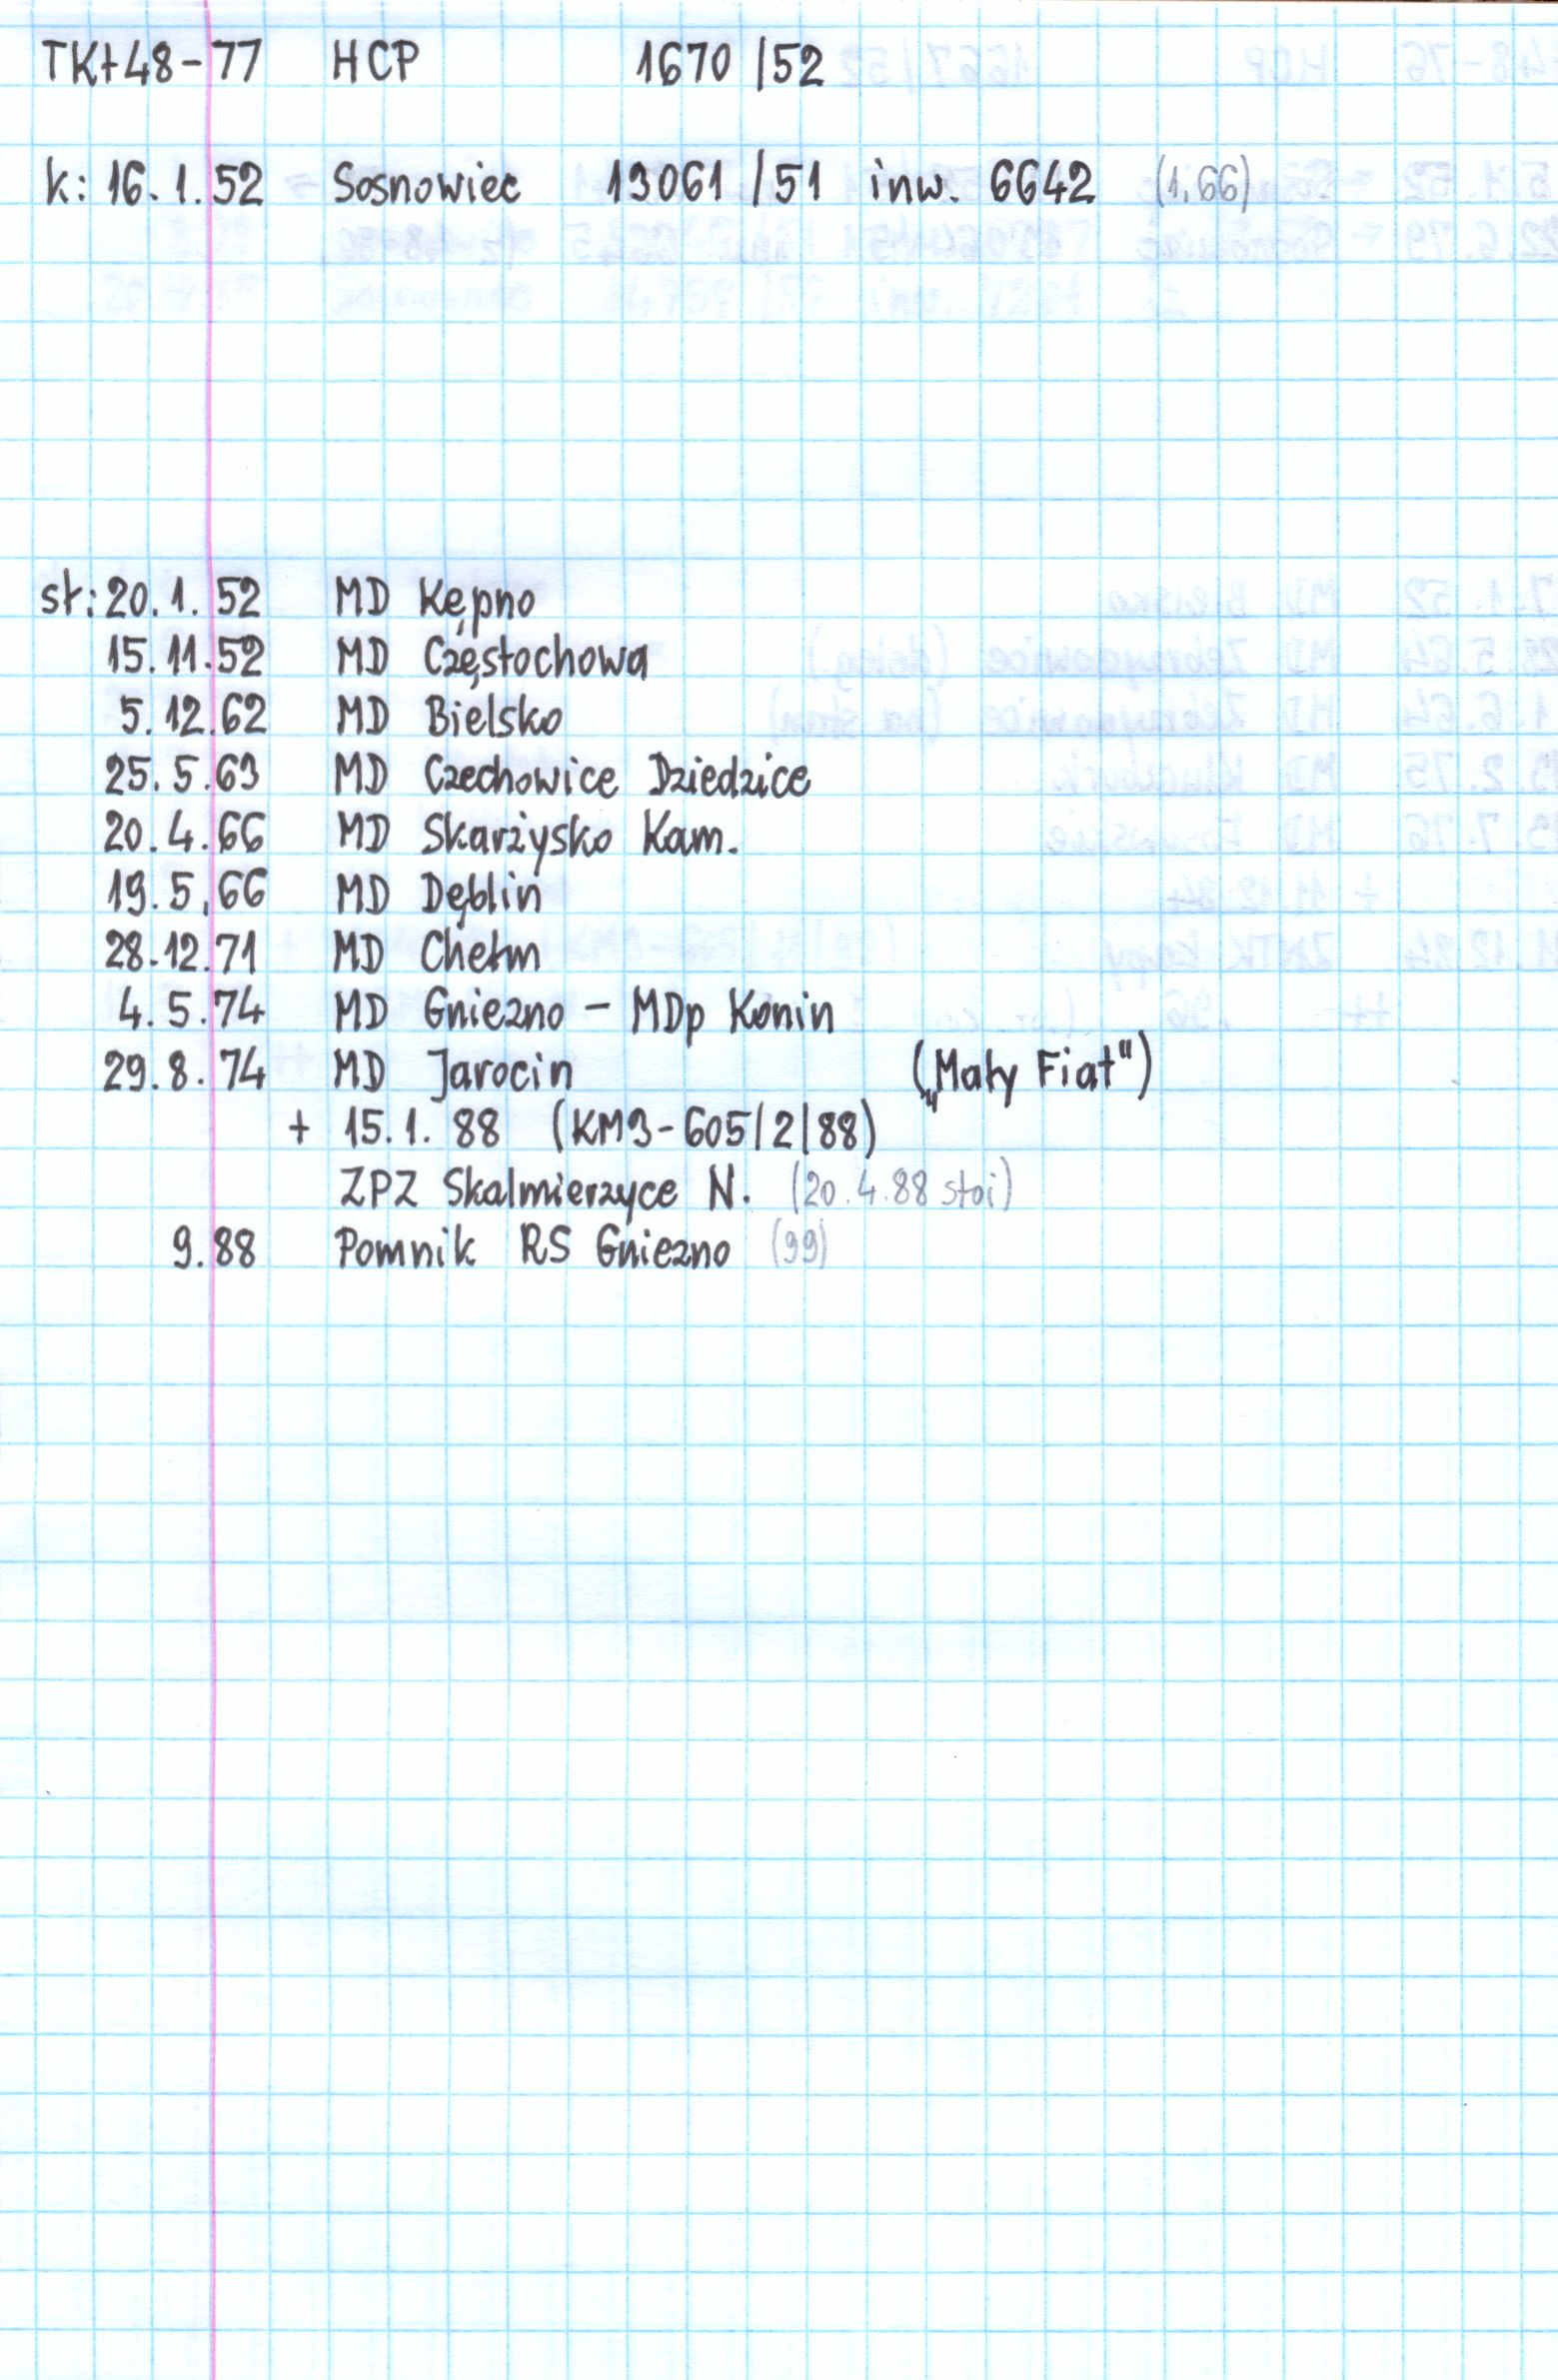 TKt48-77 HCP 1670/52
k: 16.1.52 Sosnowiec 13061/51 inw. 6642 (1.66)
st: 20.1.52 MD Kępno
15.11.52 MD Częstochowa
5.12.62 MD Bielsko
25.5.63 MD Czechowice Dziedzice
20.4.66 MD Skarżysko Kam.
19.5.66 MD Dęblin
28.12.71 MD Chełm
4.5.74 MD Gniezno - MDp Konin
29.8.74 MD Jarocin („Mały Fiat")
+ 15.1.88 (KM3-605/2/88)
ZPZ Skalmierzyce N. (20.4.88 stoi)
9.88 Pomnik RS Gniezno (99)